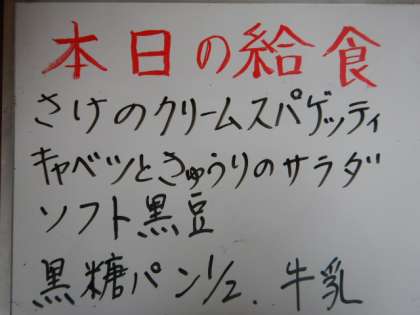 本日の給食
さけのクリームスパゲッティ
キャベツときゅうりのサラダ
ソフト黒豆
黒糖パン1/2、牛乳